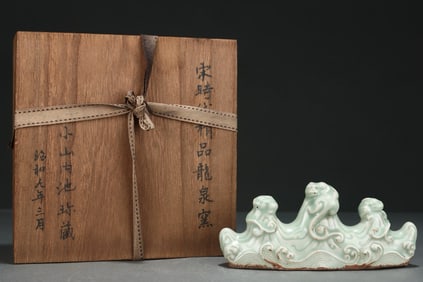 宋時代精品龍泉窯
小山甶池珎藏
昭和九年三月